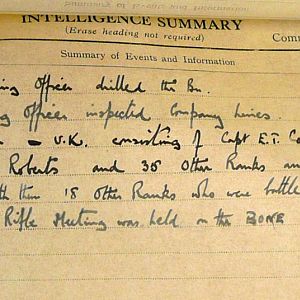 INTELLIGENCE SUMMARY
(Erase heading not required)
Com
Summary of Events and Information
ing Officer drilled the Bn.
g Officer inspected Company Lines.
– U.K. consisting of Capt E.T. Co
Roberts and 35 Other Ranks
th them 18 Other Ranks who were battle
Rifle Meeting was held on the BONE